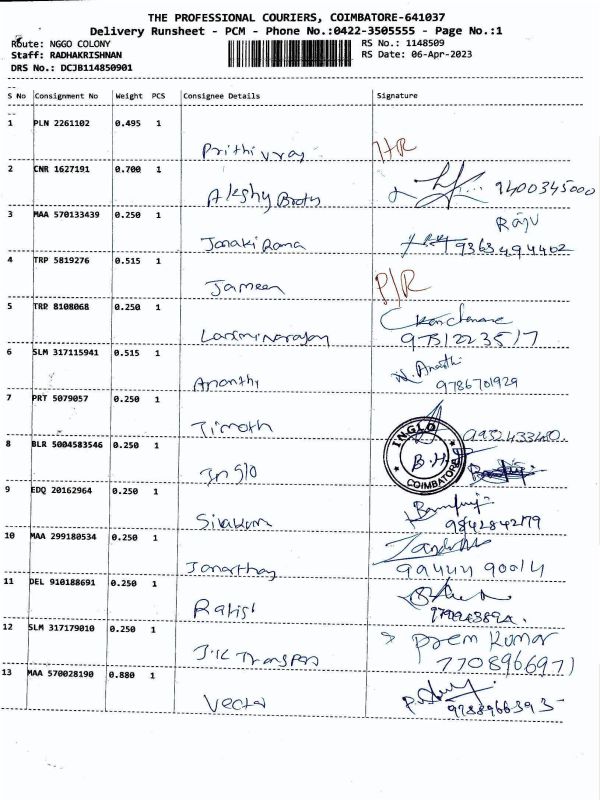 THE PROFESSIONAL COURIERS, COIMBATORE-641037
Delivery Runsheet - PCM - Phone No.:0422-3505555 - Page No.:1
Route: NGGO COLONY
RS No.: 1148509
Staff: RADHAKRISHNAN
RS Date: 06-Apr-2023
DRS No.: DCJB114850901
S No Consignment No Weight PCS Consignee Details Signature
1 PLN 2261102 0.495 1
Prithivraj HR
2 CNR 1627191 0.700 1
Akshy Broth 9400345000
3 MAA 570133439 0.250 1 Raju
Janaki Rama 9363494402
4 TRP 5819276 0.515 1
Jameen P/R
5 TRP 8108068 0.250 1
Laxminarayan 9751223517
6 SLM 317115941 0.515 1
Ananthi N. Ananthi
9786701929
7 PRT 5079057 0.250 1
Timoth 9952433480
8 BLR 5004583546 0.250 1
Inglo INGLO B.H COIMBATORE
9 EDQ 20162964 0.250 1
Sivakum 9842842179
10 MAA 299180534 0.250 1
Janarthan 9944490014
11 DEL 910188691 0.250 1
Ratish
12 SLM 317179010 0.250 1 Prem Kumar
J.K Transpers 7708966971
13 MAA 570028190 0.880 1
Vector 9788966393